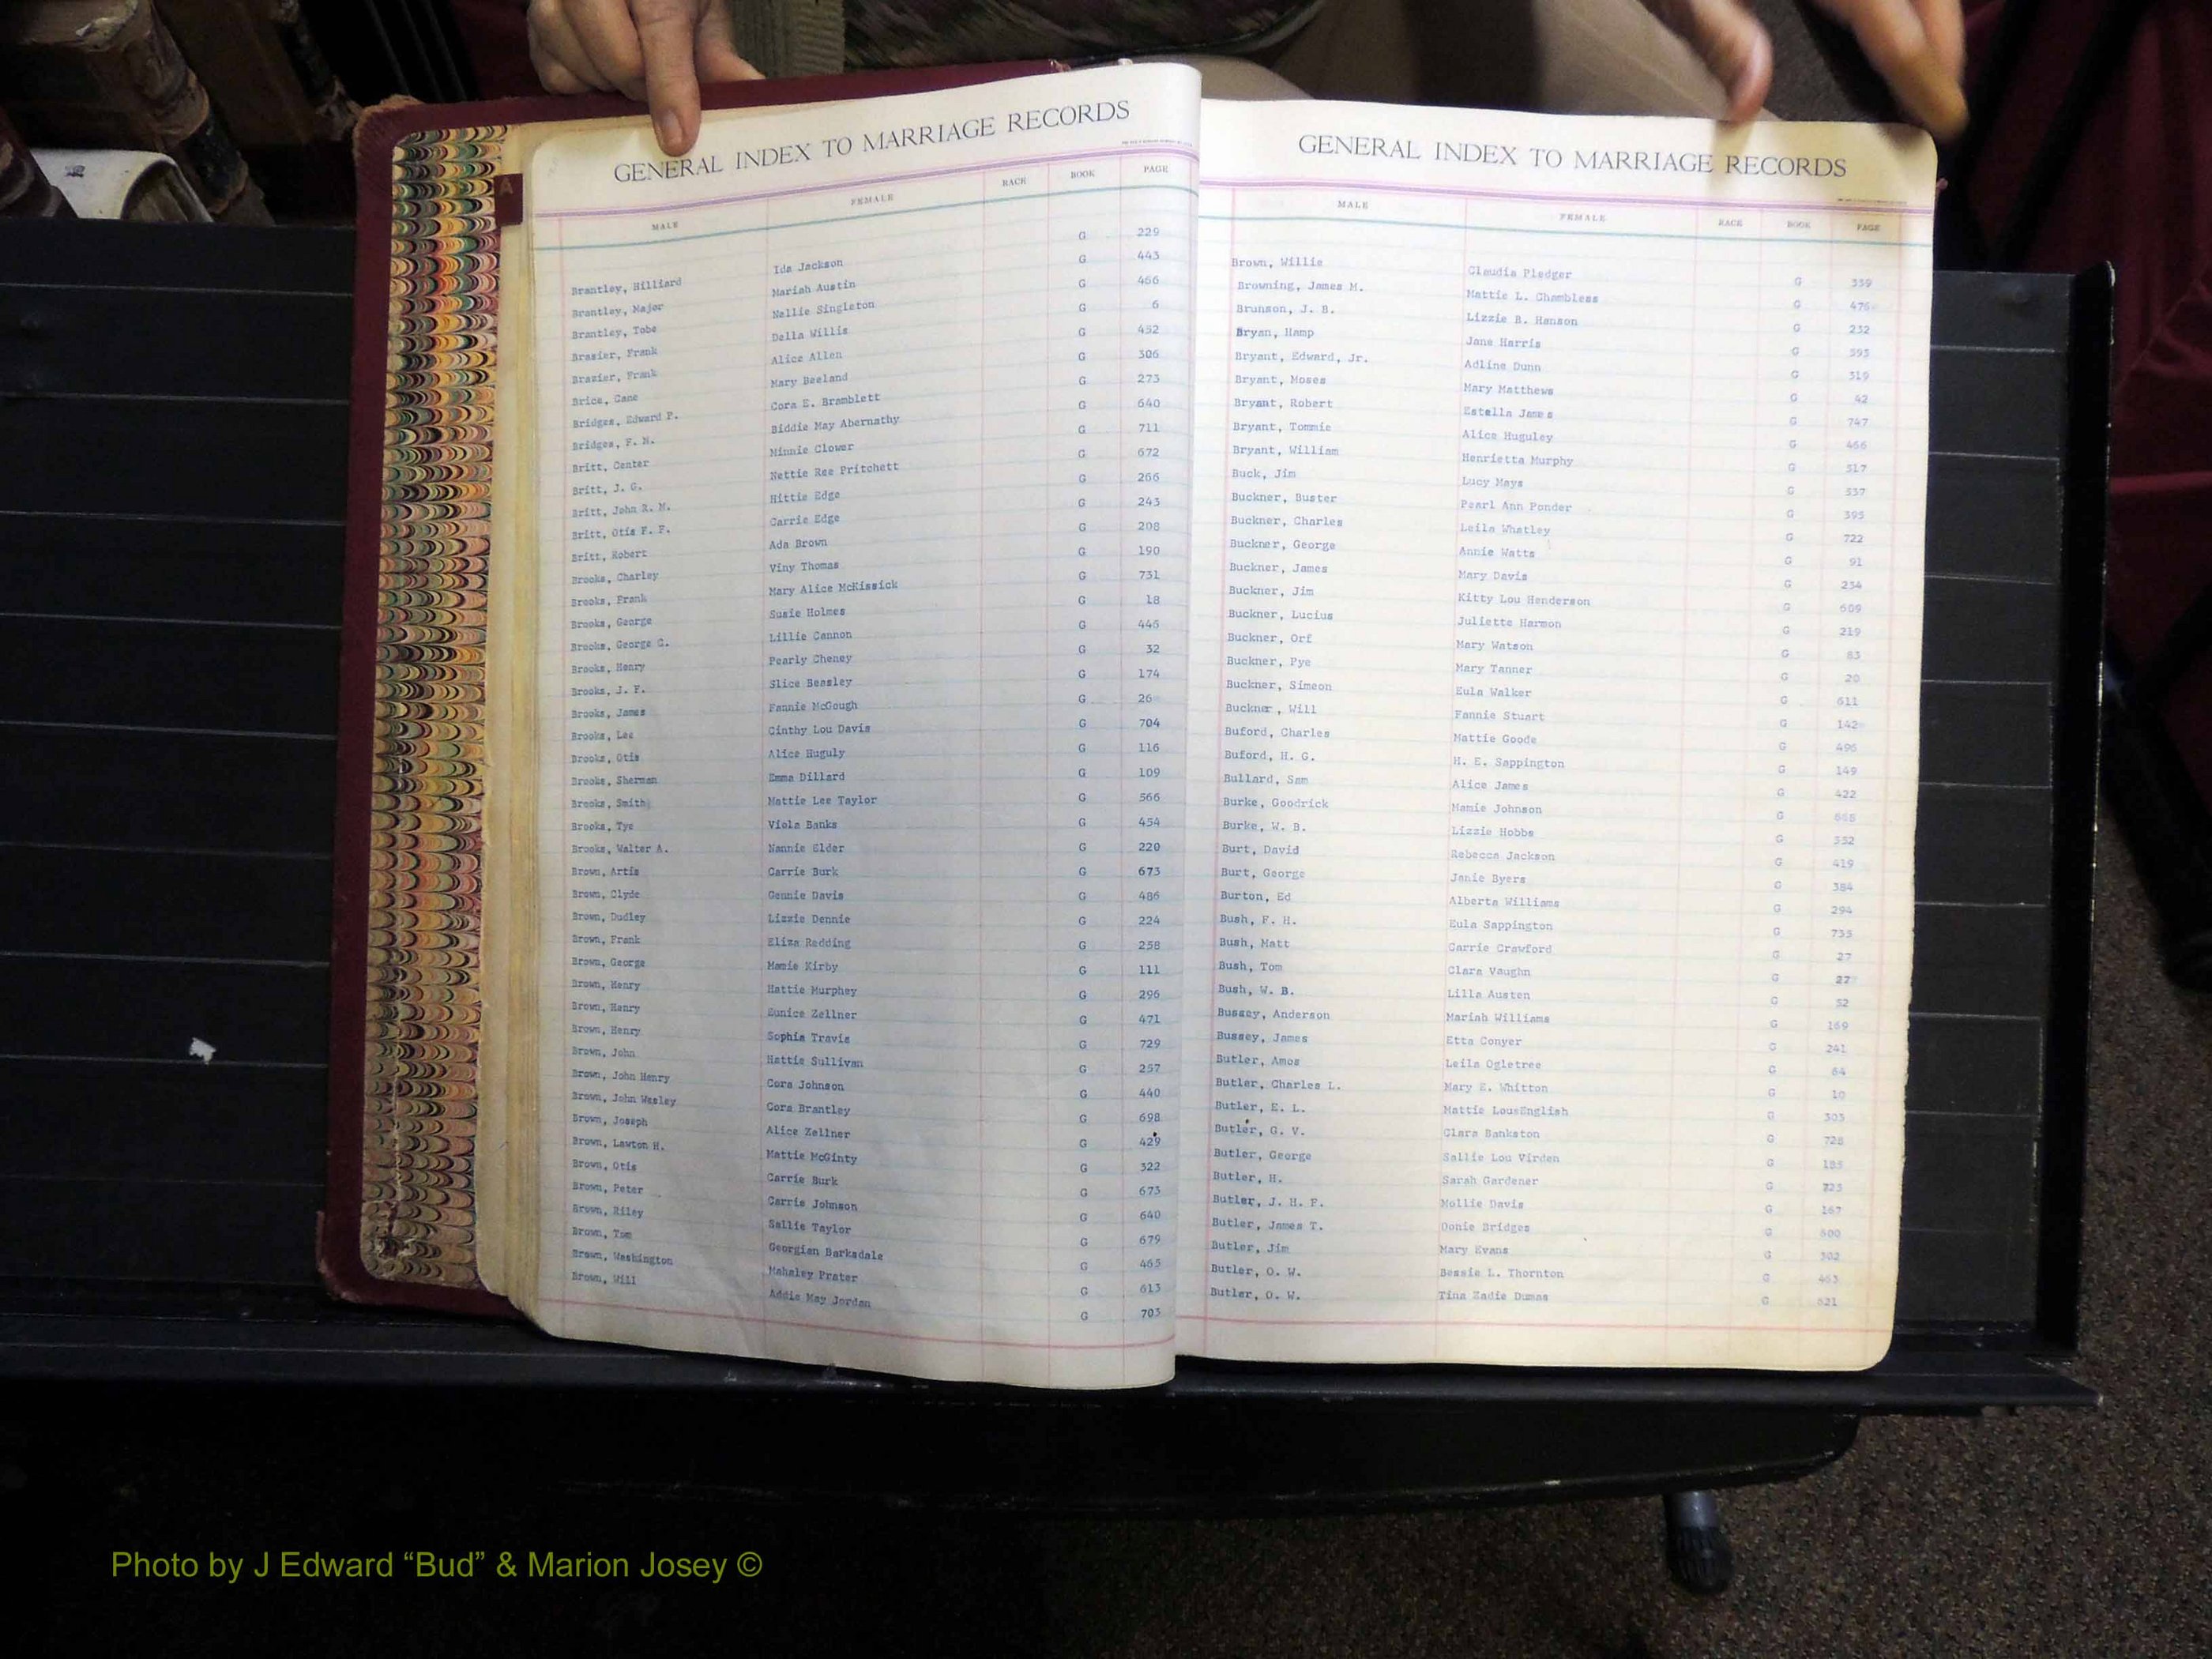 GENERAL INDEX TO MARRIAGE RECORDS
MALE FEMALE RACE BOOK PAGE
Brantley, Hilliard Ida Jackson G 229
Brantley, Major Mariah Austin G 443
Brantley, Tobe Nellie Singleton G 466
Brasier, Frank Della Willis G 6
Brazier, Frank Alice Allen G 432
Brice, Gane Mary Beeland G 306
Bridges, Edward P. Cora E. Bramblett G 273
Bridges, F. N. Biddie May Abernathy G 640
Britt, Center Minnie Clower G 711
Britt, J. G. Nettie Ree Pritchett G 672
Britt, John R. M. Hittie Edge G 266
Britt, Otis F. F. Carrie Edge G 243
Britt, Robert Ada Brown G 208
Brooks, Charley Viny Thomas G 190
Brooks, Frank Mary Alice McKissick G 731
Brooks, George Susie Holmes G 18
Brooks, George C. Lillie Cannon G 446
Brooks, Henry Pearly Cheney G 32
Brooks, J. F. Slice Beasley G 174
Brooks, James Fannie McGough G 26
Brooks, Lee Cinthy Lou Davis G 704
Brooks, Otis Alice Huguly G 116
Brooks, Sherman Emma Dillard G 109
Brooks, Smith Mattie Lee Taylor G 566
Brooks, Tye Viola Banks G 454
Brooks, Walter A. Nannie Elder G 220
Brown, Artis Carrie Burk G 673
Brown, Clyde Gennie Davis G 486
Brown, Dudley Lizzie Dennie G 224
Brown, Frank Eliza Redding G 258
Brown, George Mamie Kirby G 111
Brown, Henry Hattie Murphey G 296
Brown, Henry Eunice Zellner G 471
Brown, Henry Sophia Travis G 729
Brown, John Hattie Sullivan G 257
Brown, John Henry Cora Johnson G 440
Brown, John Wesley Cora Brantley G 698
Brown, Joseph Alice Zellner G 429
Brown, Lawton H. Mattie McGinty G 322
Brown, Otis Carrie Burk G 673
Brown, Peter Carrie Johnson G 640
Brown, Riley Sallie Taylor G 679
Brown, Tom Georgian Barksdale G 465
Brown, Washington Mahaley Prater G 613
Brown, Will Addie May Jordan G 703
GENERAL INDEX TO MARRIAGE RECORDS
MALE FEMALE RACE BOOK PAGE
Brown, Willie Claudia Pledger G 339
Browning, James M. Mattie L. Chambless G 476
Brunson, J. B. Lizzie B. Hanson G 232
Bryan, Hamp Jane Harris G 393
Bryant, Edward, Jr. Adline Dunn G 319
Bryant, Moses Mary Matthews G 42
Bryant, Robert Estella James G 747
Bryant, Tommie Alice Huguley G 466
Bryant, William Henrietta Murphy G 317
Buck, Jim Lucy Mays G 337
Buckner, Buster Pearl Ann Ponder G 395
Buckner, Charles Leila Whatley G 722
Buckner, George Annie Watts G 91
Buckner, James Mary Davis G 234
Buckner, Jim Kitty Lou Henderson G 609
Buckner, Lucius Juliette Harmon G 219
Buckner, Orf Mary Watson G 83
Buckner, Pye Mary Tanner G 20
Buckner, Simeon Eula Walker G 611
Buckner, Will Fannie Stuart G 142
Buford, Charles Mattie Goode G 496
Buford, H. G. H. E. Sappington G 149
Bullard, Sam Alice James G 422
Burke, Goodrick Mamie Johnson G
Burke, W. B. Lizzie Hobbs G 332
Burt, David Rebecca Jackson G 419
Burt, George Janie Byers G 384
Burton, Ed Alberta Williams G 294
Bush, F. H. Eula Sappington G 735
Bush, Matt Carrie Crawford G 27
Bush, Tom Clara Vaughn G 22
Bush, W. B. Lilla Austen G 52
Bussey, Anderson Mariah Williams G 169
Bussey, James Etta Conyer G 241
Butler, Amos Leila Ogletree G 64
Butler, Charles L. Mary E. Whitton G 10
Butler, E. L. Mattie LousEnglish G 303
Butler, G. V. Clara Bankston G 728
Butler, George Sallie Lou Virden G 185
Butler, H. Sarah Gardener G
Butler, J. H. F. Mollie Davis G 167
Butler, James T. Donie Bridges G 600
Butler, Jim Mary Evans G 302
Butler, O. W. Bessie L. Thornton G 463
Butler, O. W. Tina Eadie Dumas G 621
Photo by J Edward “Bud” & Marion Josey ©